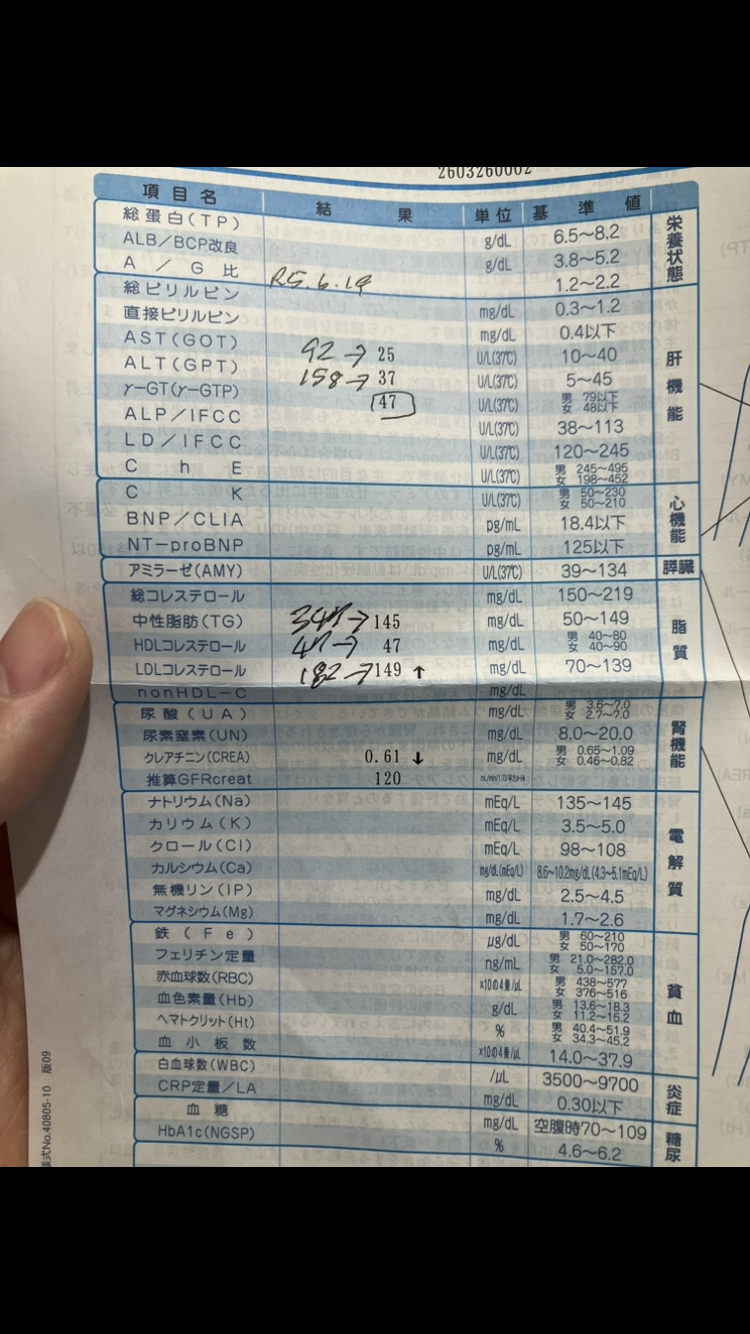 2603260002
項目名 結果 単位 基準値
総蛋白(TP) g/dL 6.5～8.2 栄養状態
ALB/BCP改良 g/dL 3.8～5.2
A/G比 R5.6.19 1.2～2.2
総ビリルビン mg/dL 0.3～1.2 肝機能
直接ビリルビン mg/dL 0.4以下
AST(GOT) 92→25 U/L(37℃) 10～40
ALT(GPT) 158→37 U/L(37℃) 5～45
γ-GT(γ-GTP) 47 U/L(37℃) 男 79以下 女 48以下
ALP/IFCC U/L(37℃) 38～113
LD/IFCC U/L(37℃) 120～245
ChE U/L(37℃) 男 245～495 女 198～452
CK U/L(37℃) 男 50～230 女 50～210 心機能
BNP/CLIA pg/mL 18.4以下
NT-proBNP pg/mL 125以下
アミラーゼ(AMY) U/L(37℃) 39～134 膵臓
総コレステロール mg/dL 150～219 脂質
中性脂肪(TG) →145 mg/dL 50～149
HDLコレステロール →47 mg/dL 男 40～80 女 40～90
LDLコレステロール 182→149 ↑ mg/dL 70～139
nonHDL-C mg/dL
尿酸(UA) mg/dL 男 3.6～7.0 女 2.7～7.0 腎機能
尿素窒素(UN) mg/dL 8.0～20.0
クレアチニン(CREA) 0.61 ↓ mg/dL 男 0.65～1.09 女 0.46～0.82
推算GFRcreat 120
ナトリウム(Na) mEq/L 135～145 電解質
カリウム(K) mEq/L 3.5～5.0
クロール(Cl) mEq/L 98～108
カルシウム(Ca) mg/dL(mEq/L) 8.6～10.2mg/dL(4.3～5.1mEq/L)
無機リン(IP) mg/dL 2.5～4.5
マグネシウム(Mg) mg/dL 1.7～2.6
鉄(Fe) μg/dL 男 60～210 女 50～170 貧血
フェリチン定量 ng/mL 男 21.0～282.0 女 5.0～157.0
赤血球数(RBC) ×10の4乗/μL 男 438～577 女 376～516
血色素量(Hb) g/dL 男 13.6～18.3 女 11.2～15.2
ヘマトクリット(Ht) % 男 40.4～51.9 女 34.3～45.2
血小板数 ×10の4乗/μL 14.0～37.9
白血球数(WBC) /μL 3500～9700 炎症
CRP定量/LA mg/dL 0.30以下
血糖 mg/dL 空腹時70～109 糖尿
HbA1c(NGSP) % 4.6～6.2
様式No.40805-10 版09